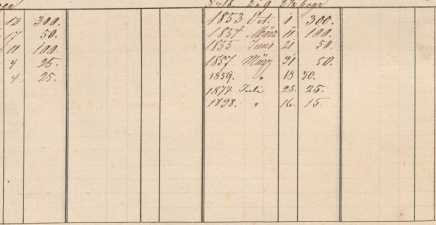 12 300. 1853 Oct. 1 300.
17 50. 1854 März 11 100.
11 100. 1855 Juni 21 50.
4 25. 1857 März 31 50.
4 25. 1859. " 13 50.
1877 Juli 25. 25.
1878. " 16 15.